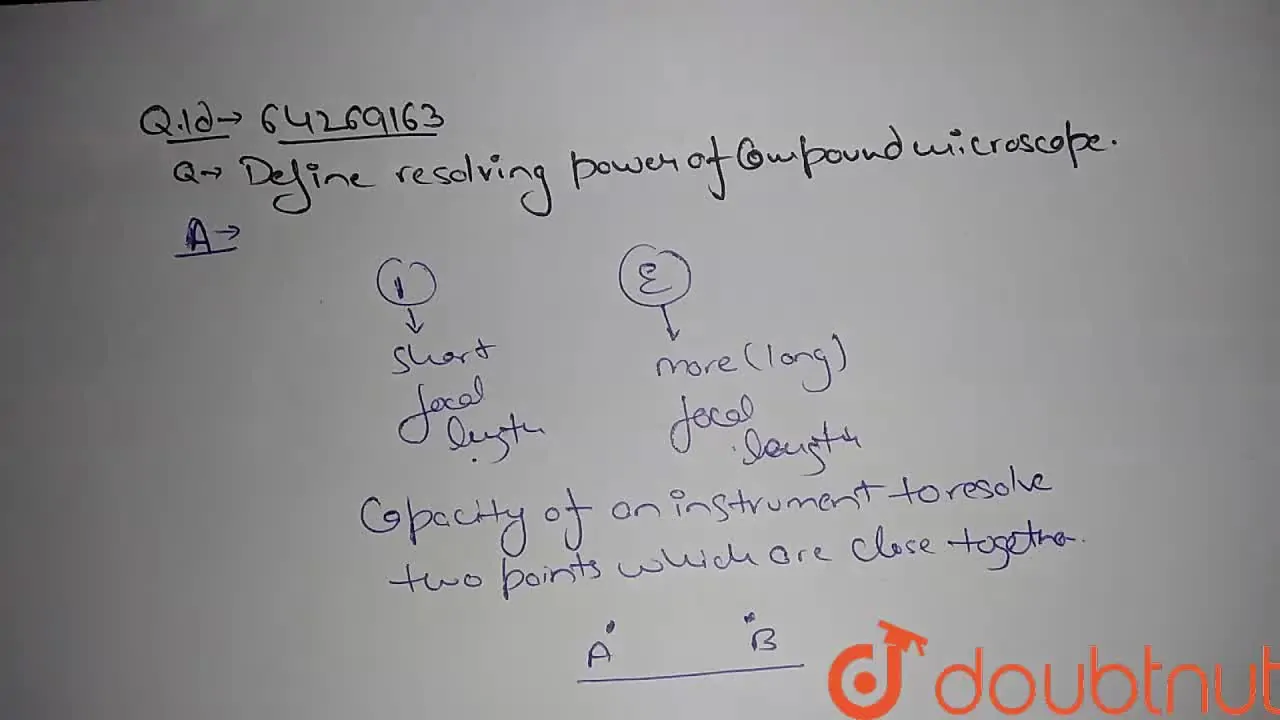 Q.Id→ 64269163
Q→ Define resolving power of Compound microscope.
A→
1 E
short more (long)
focal focal
length length
Capacity of an instrument to resolve
two points which are close together.
A B
doubtnut